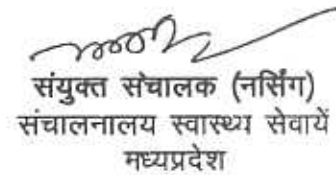 संयुक्त संचालक (नर्सिंग)
संचालनालय स्वास्थ्य सेवायें
मध्यप्रदेश